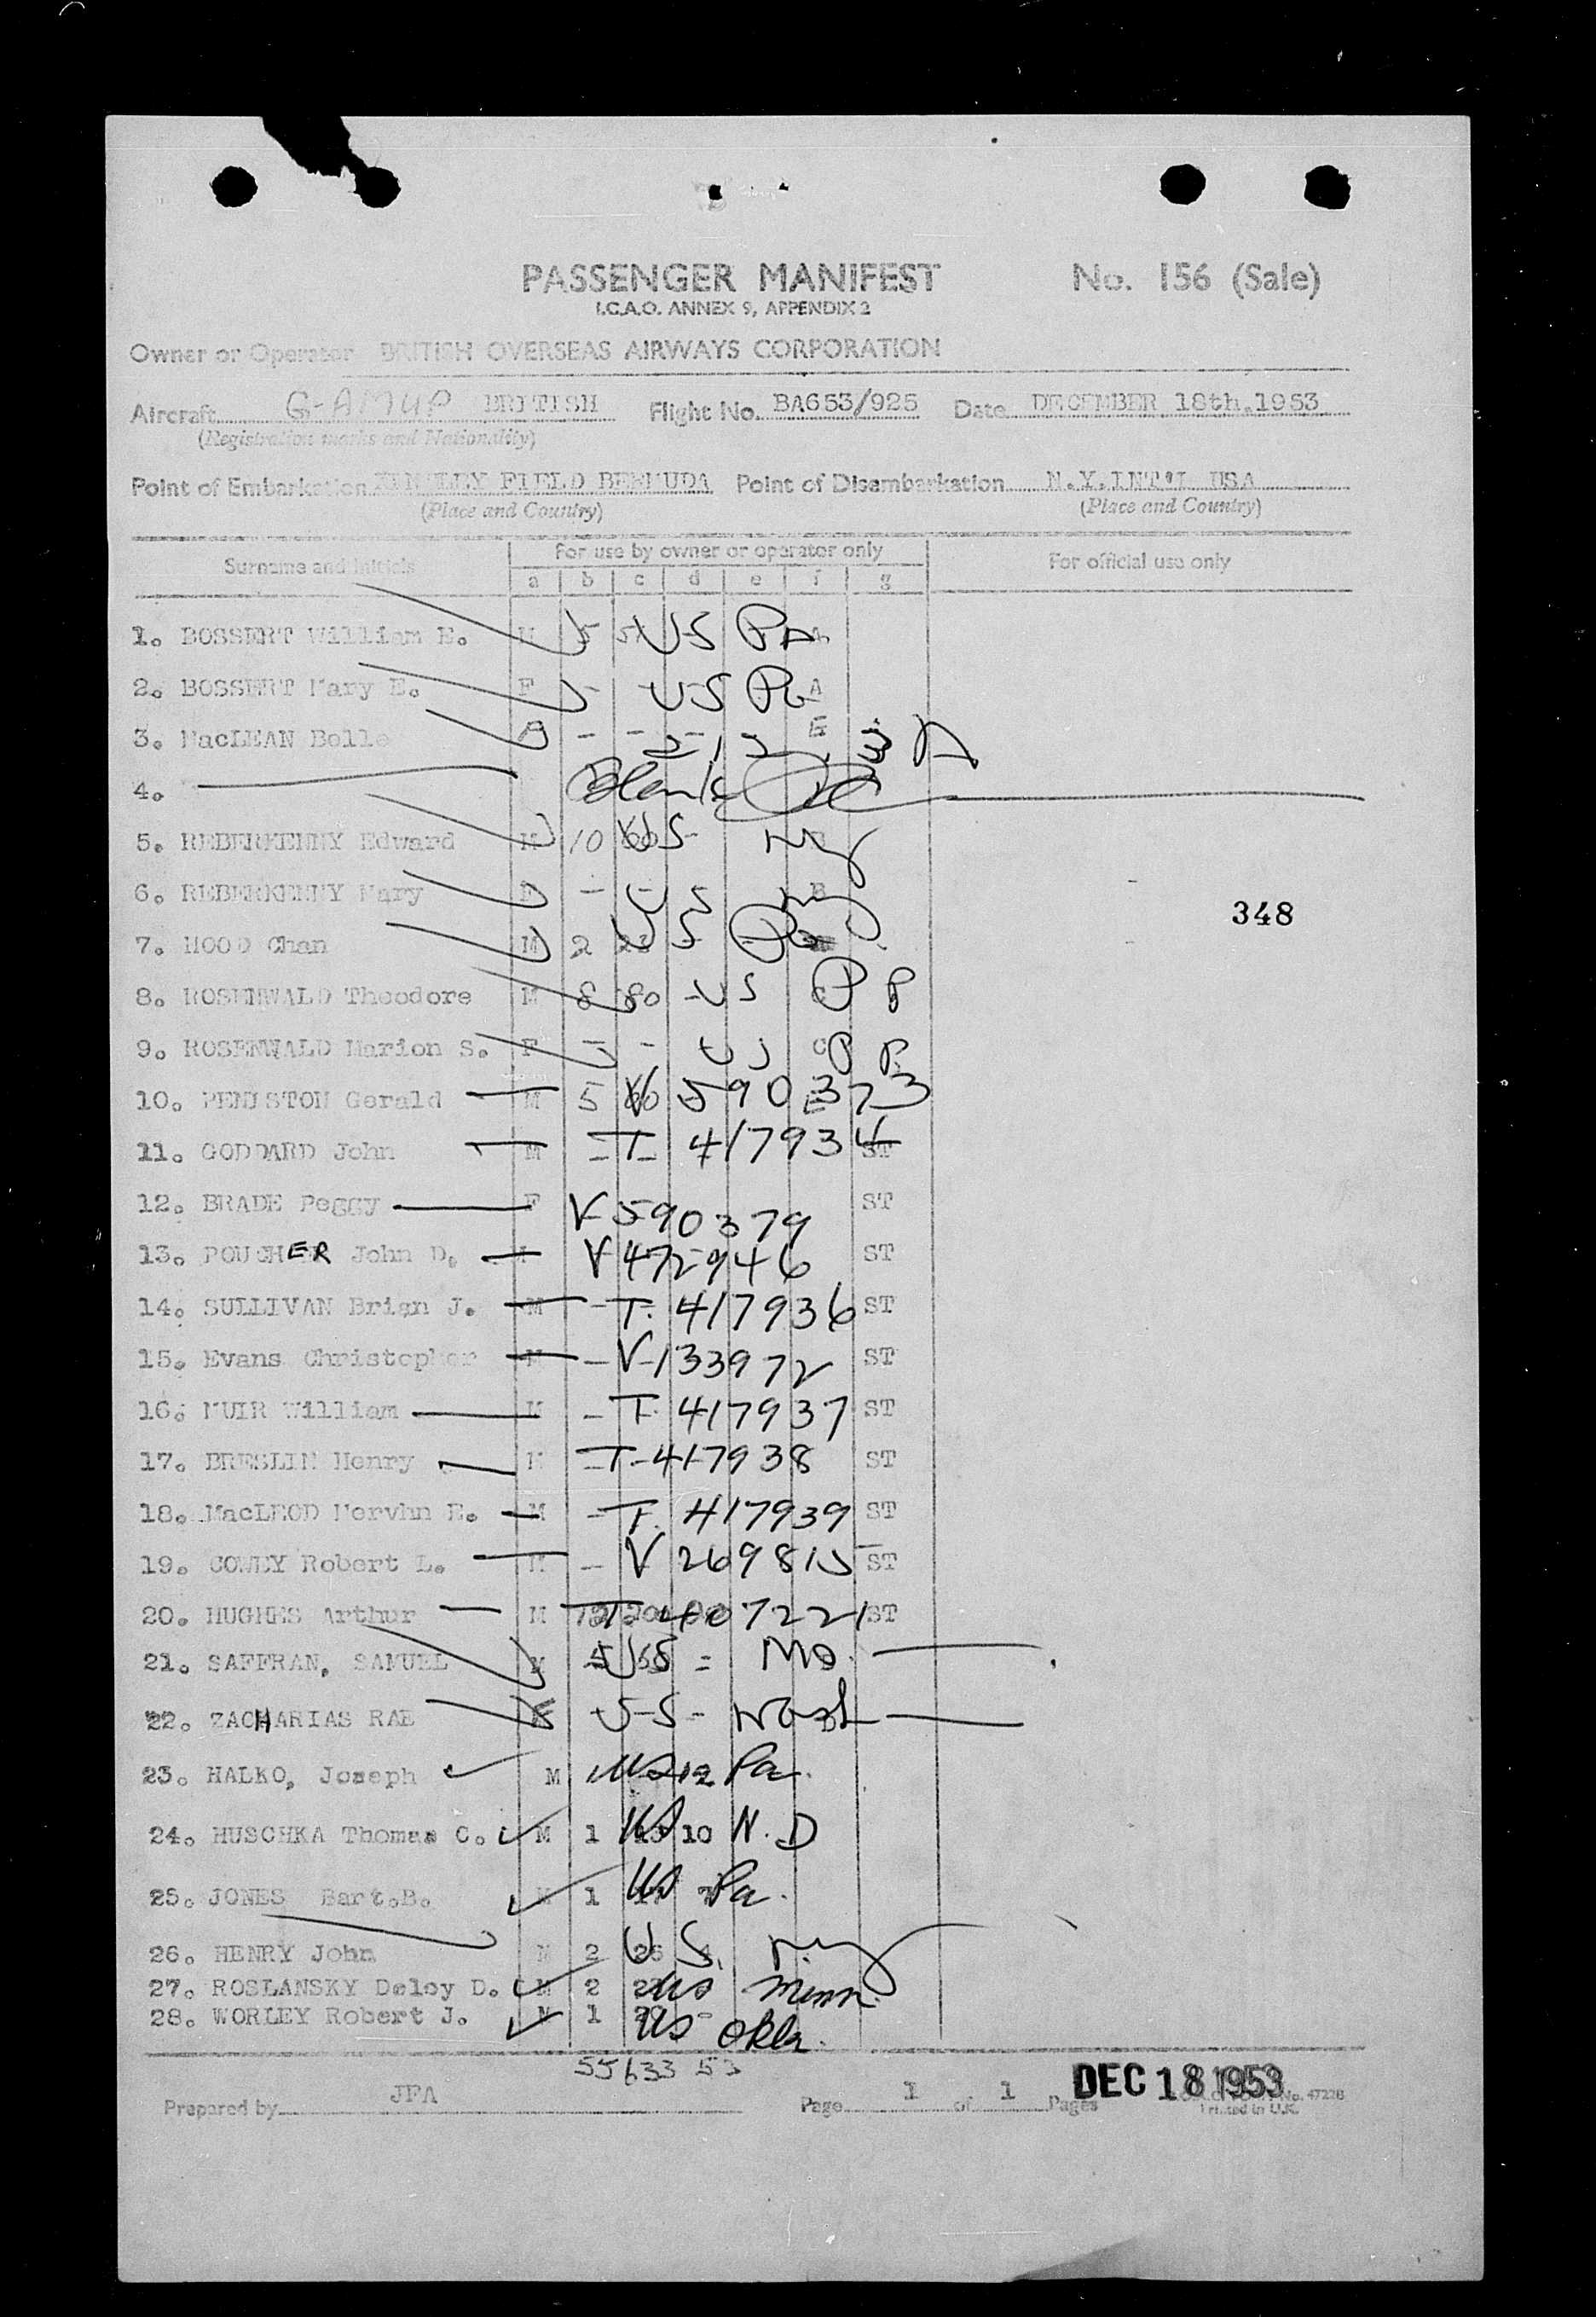 PASSENGER MANIFEST No. 156 (Sale)
I.C.A.O. ANNEX 9, APPENDIX 2
Owner or Operator BRITISH OVERSEAS AIRWAYS CORPORATION
Aircraft G-AMUP BRITISH Flight No. BA653/925 Date DECEMBER 18th.1953
(Registration marks and Nationality)
Point of Embarkation KINDLEY FIELD BERMUDA Point of Disembarkation N.Y.INT'L USA
(Place and Country) (Place and Country)
Surname and Initials For use by owner or operator only For official use only
a b c d e f g
1. BOSSERT William E. M 5 US Pa
2. BOSSERT Mary E. F - US Pa A
3. MacLEAN Belle - - -
4. Blank
5. REBERKENNY Edward M 10 US NY
6. REBERKENNY Mary F - - US NY
348
7. MOOD Chan M 2 US Pa
8. ROSENWALD Theodore M 8 80 US C PP
9. ROSENWALD Marion S. F - - US C PP
10. PENISTON Gerald M 5 60 V 590373
11. GODDARD John M - T 417934 ST
12. BRADE Peggy F V 590379 ST
13. POUCHER John D. V 472946 ST
14. SULLIVAN Brian J. M - T. 417936 ST
15. Evans Christopher M - V-133972 ST
16. MUIR William M - T. 417937 ST
17. BRESLIN Henry M T-417938 ST
18. MacLEOD Mervhn E. M - T. 417939 ST
19. COWEY Robert L. M - V 269815 ST
20. HUGHES Arthur M T 407221 ST
21. SAFFRAN, SAMUEL M US - Mo.
22. ZACHARIAS RAE US - Wash
23. HALKO, Joseph M US 12 Pa.
24. HUSCHKA Thomas C. M 1 US 10 N.D
25. JONES Bart.B. M 1 US Pa.
26. HENRY John M 2 26 US. NY
27. ROSLANSKY Deloy D. M 2 US Minn.
28. WORLEY Robert J. M 1 US Okla.
55633 53
Prepared by JFA Page 1 of 1 Pages DEC 18 1953
No. 4722B
Printed in U.K.